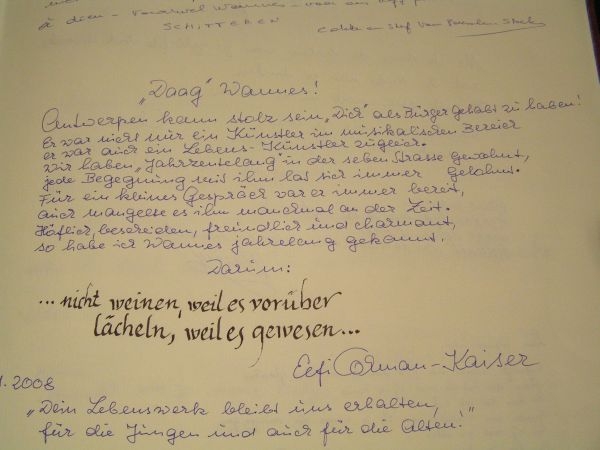 à dien - vaarwel Wannes - voor een
SCHITTEREN
"Daag" Wannes!
Antwerpen kann stolz sein, "Dich" als Bürger gehabt zu haben!
Er war nicht nur ein Künstler im musikalischen Bereich
er war auch ein Lebens-Künstler zugleich.
Wir haben "Jahrzentelang" in der selben Strasse gewohnt,
jede Begegnung mit ihm hat sich immer gelohnt.
Für ein kleines Gespräch war er immer bereit,
auch mangelte es ihm manchmal an der Zeit.
Höflich, bescheiden, freundlich und charmant,
so habe ich Wannes jahrelang gekannt.
Darum:
... nicht weinen, weil es vorüber
lächeln, weil es gewesen...
Eefi Corman-Kaiser
1.2008
"Dein Lebenswerk bleibt uns erhalten,
für die Jungen und auch für die Alten!"